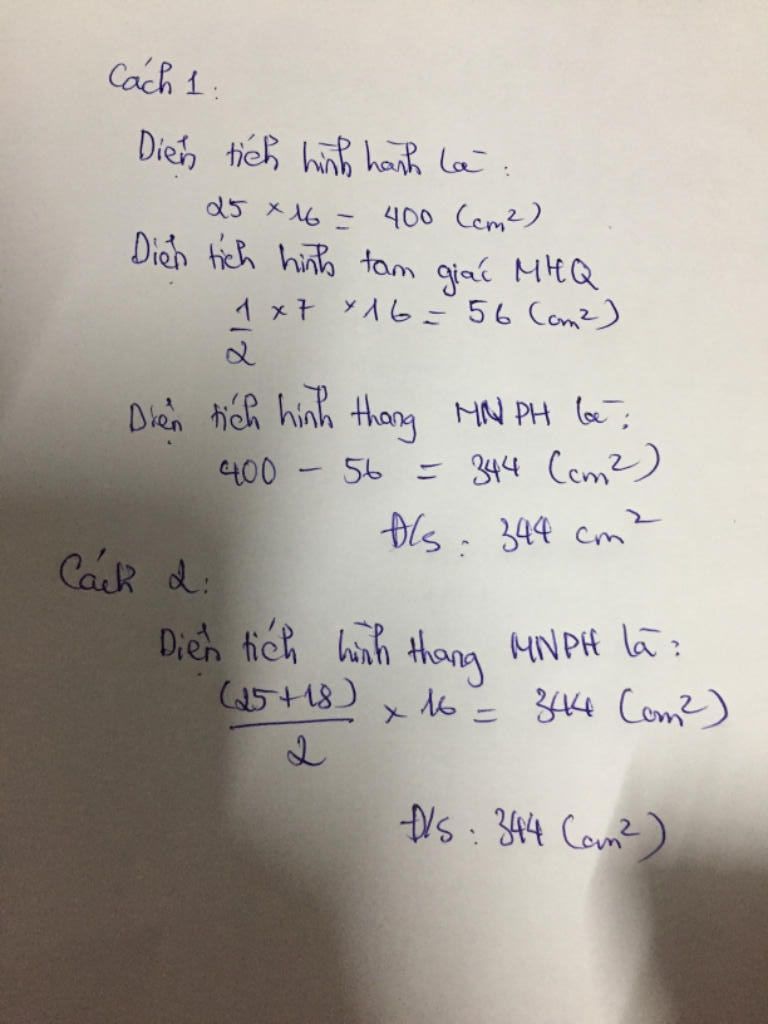 Cách 1:
Diện tích hình hành là:
25 × 16 = 400 (cm²)
Diện tích hình tam giác MHQ
1/2 × 7 × 16 = 56 (cm²)
Diện tích hình thang MNPH là:
400 - 56 = 344 (cm²)
Đ/s: 344 cm²
Cách 2:
Diện tích hình thang MNPH là:
(25+18)/2 × 16 = 344 (cm²)
Đ/s: 344 (cm²)